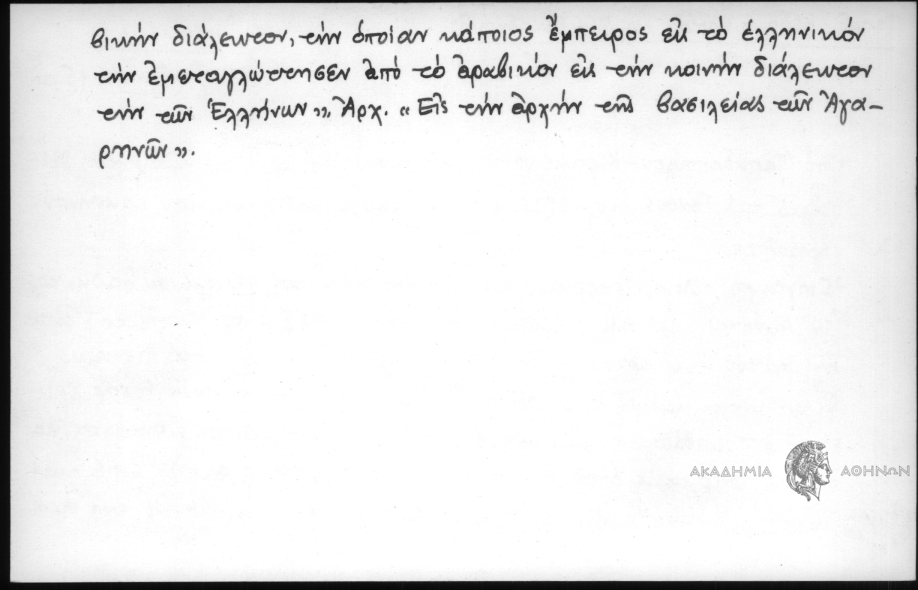 βικὴν διάλεκτον, τὴν ὁποίαν κάποιος ἔμπειρος εἰς τὸ ἑλληνικόν
τὴν ἐμεταγλώττησεν ἀπὸ τὸ ἀραβικὸν εἰς τὴν κοινὴν διάλεκτον
τὴν τῶν Ἑλλήνων». Ἀρχ. «Εἰς τὴν ἀρχὴν τῆς βασιλείας τῶν Ἀγα-
ρηνῶν».
ΑΚΑΔΗΜΙΑ ΑΘΗΝΩΝ